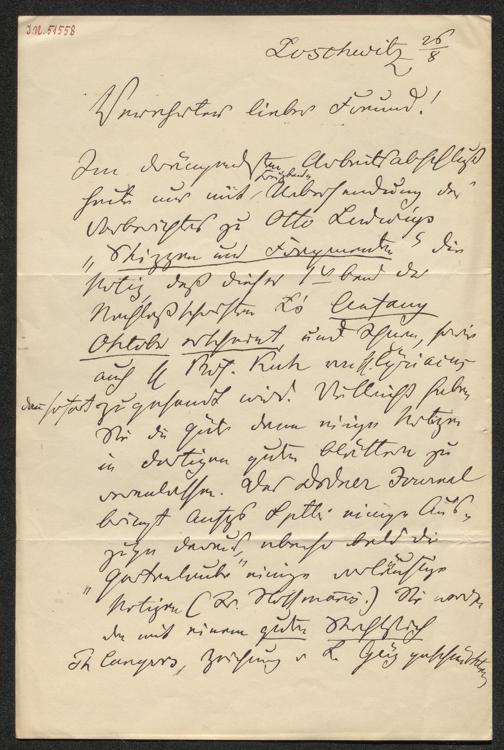 J.N. 51558
Loschwitz 26/8
Verehrter lieber Freund!
Im drängendsten Arbeitsabschluß
heute nur mit Uebersendung des
Vorberichtes zu Otto Ludwigs
„Skizzen und Fragmenten" die
Notiz, daß dieser 1. Band der
Nachlaßschriften L's Anfang
Oktober erscheint, und Ihnen, sowie
auch H Prof. Kuh
dann sofort zugesandt wird. Vielleicht haben
Sie die Güte dann einige Notizen
in dortigen guten Blättern zu
veranlassen. Das Dresdner Journal
bringt Anfgs Septbr einige Aus-
züge daraus, ebenso bald die
„Gartenlaube" einige vorläufige
Notizen (Dr. Hoffmanns.) Sie werden
den mit einem guten Stahlstich
Th Langers, Zeichnung v L.